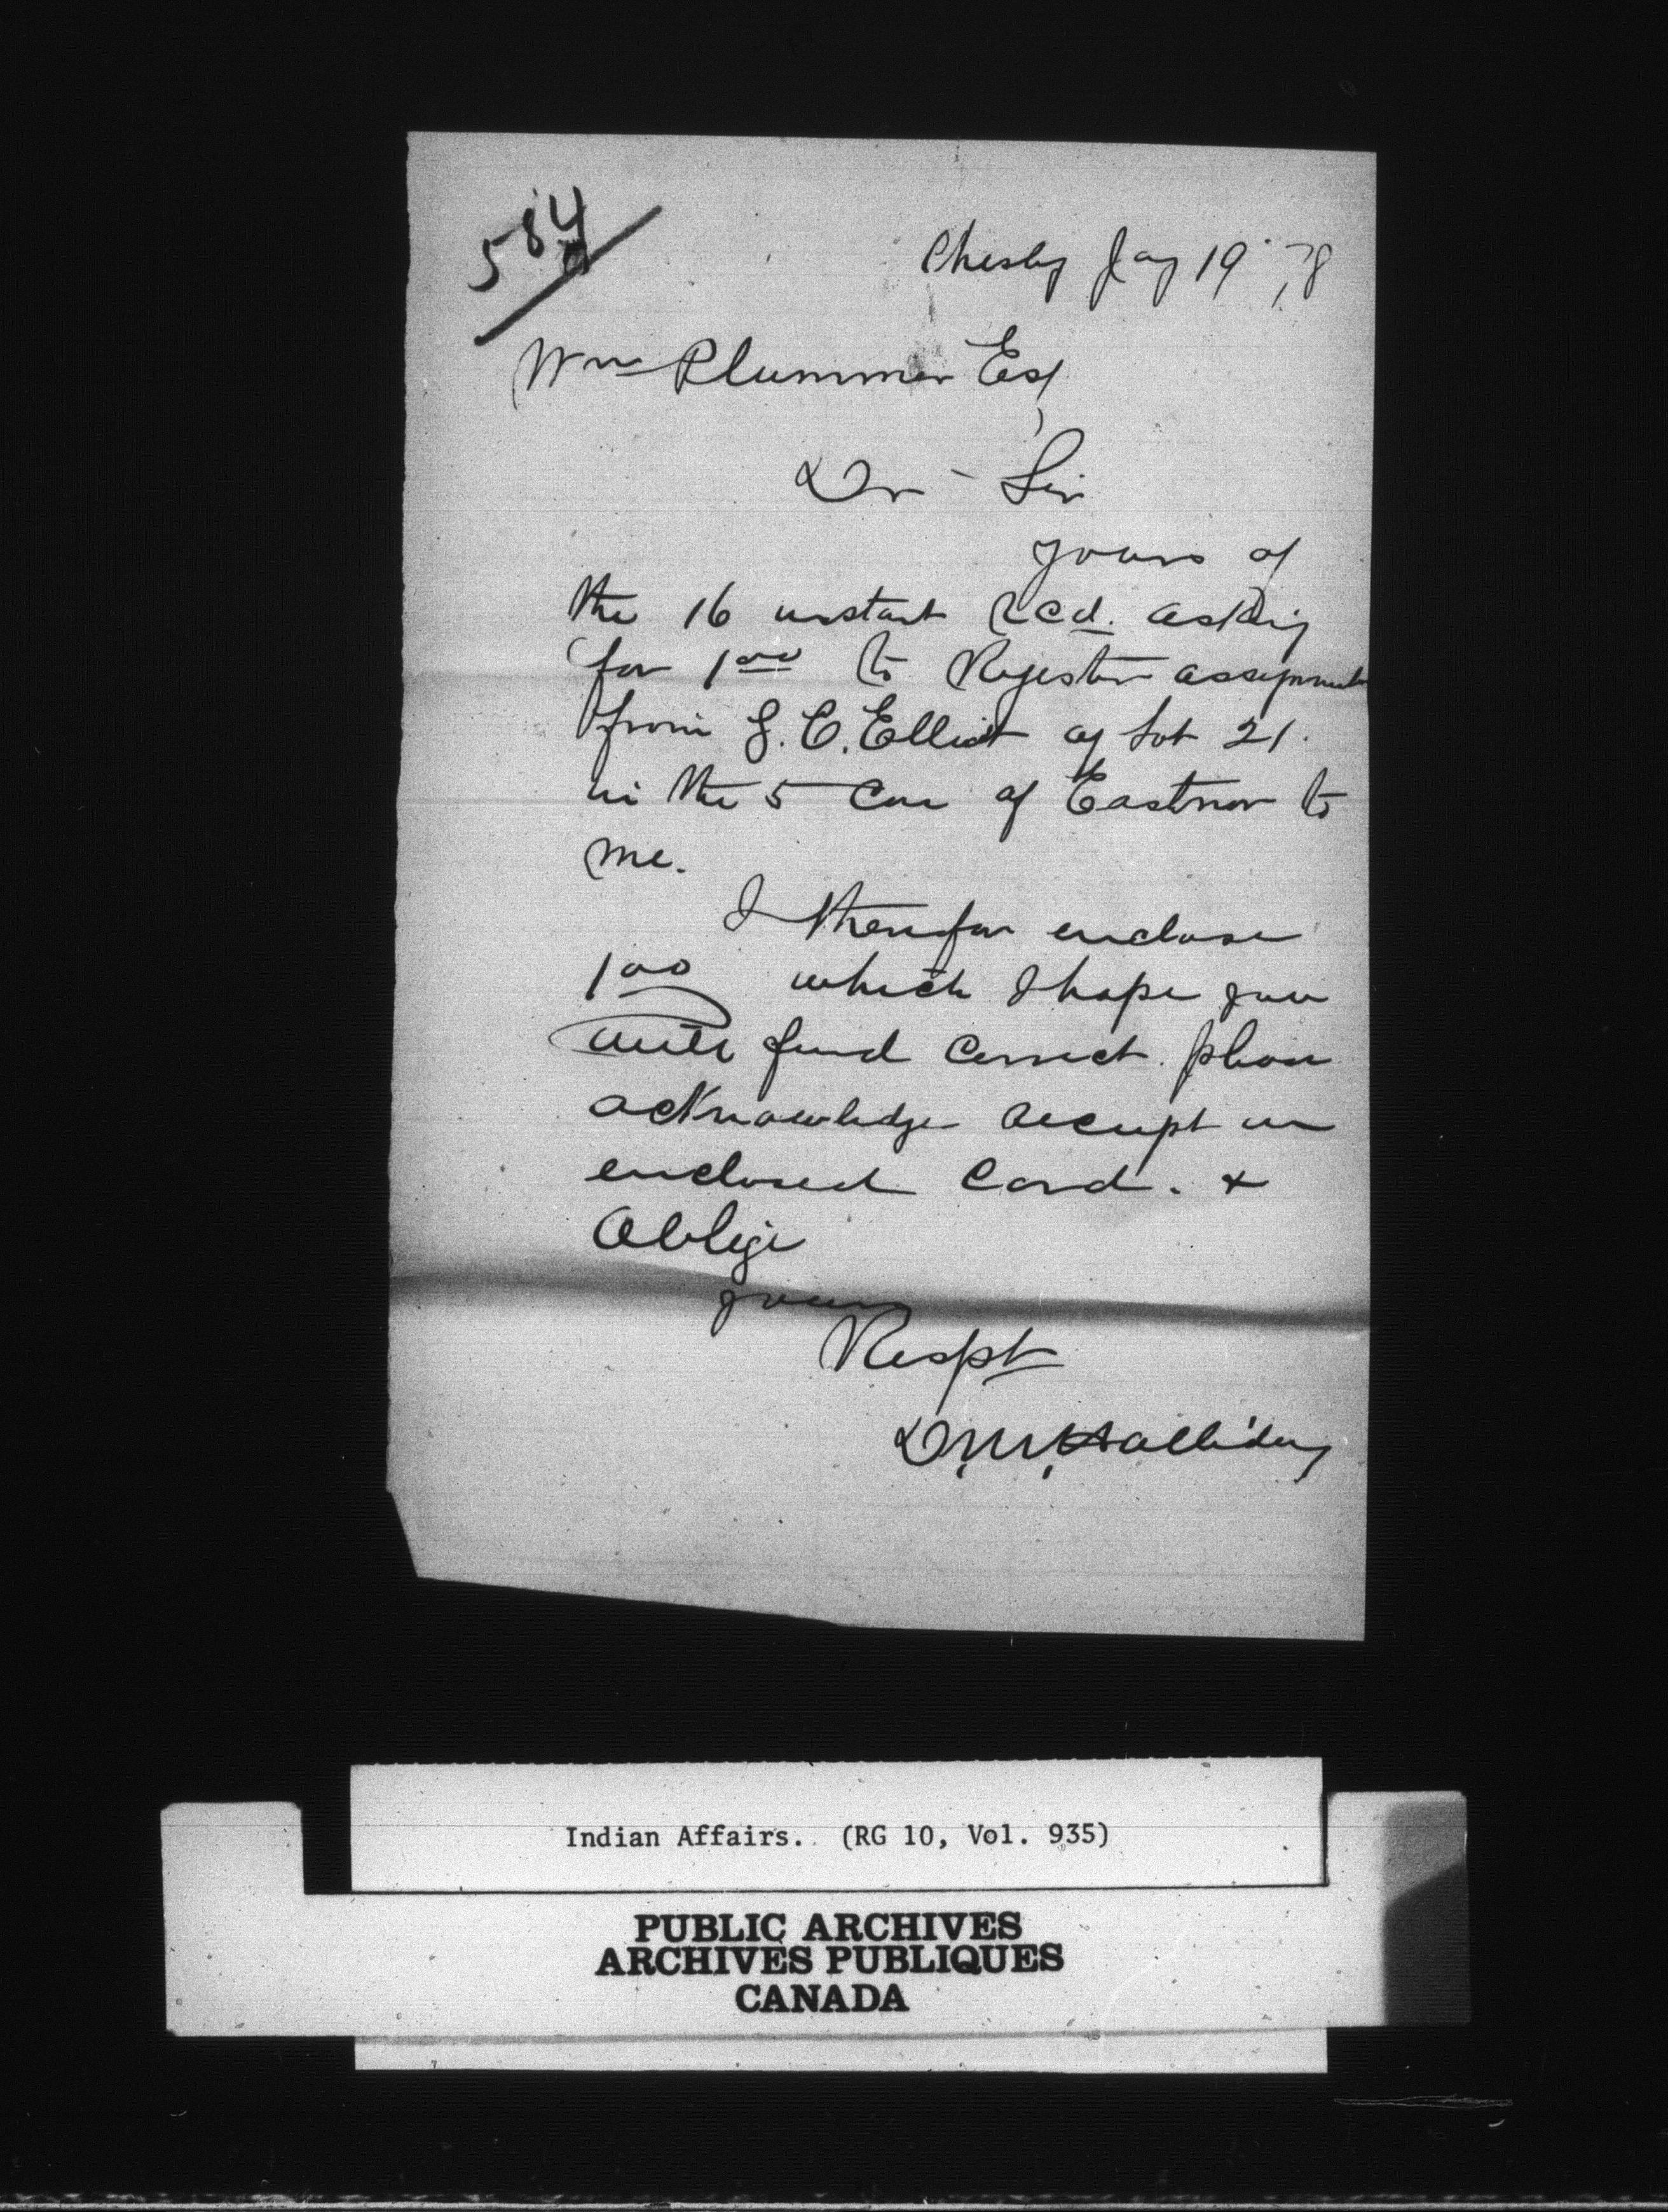 584
Chesley Jay 19 '78
Wm Plummer Esq
Dr - Sir
yours of
the 16 instant Recd. asking
for 1 00 to Rejester assignment
from G. C. Elliott of Lot 21.
in the 5 Con of Eastnor to
me.
I therefor enclose
1 00 which I hope you
will find correct. please
acknowledge receipt on
enclosed Card. +
Oblige
yours
Respt
D. M. Halliday
Indian Affairs. (RG 10, Vol. 935)
PUBLIC ARCHIVES
ARCHIVES PUBLIQUES
CANADA